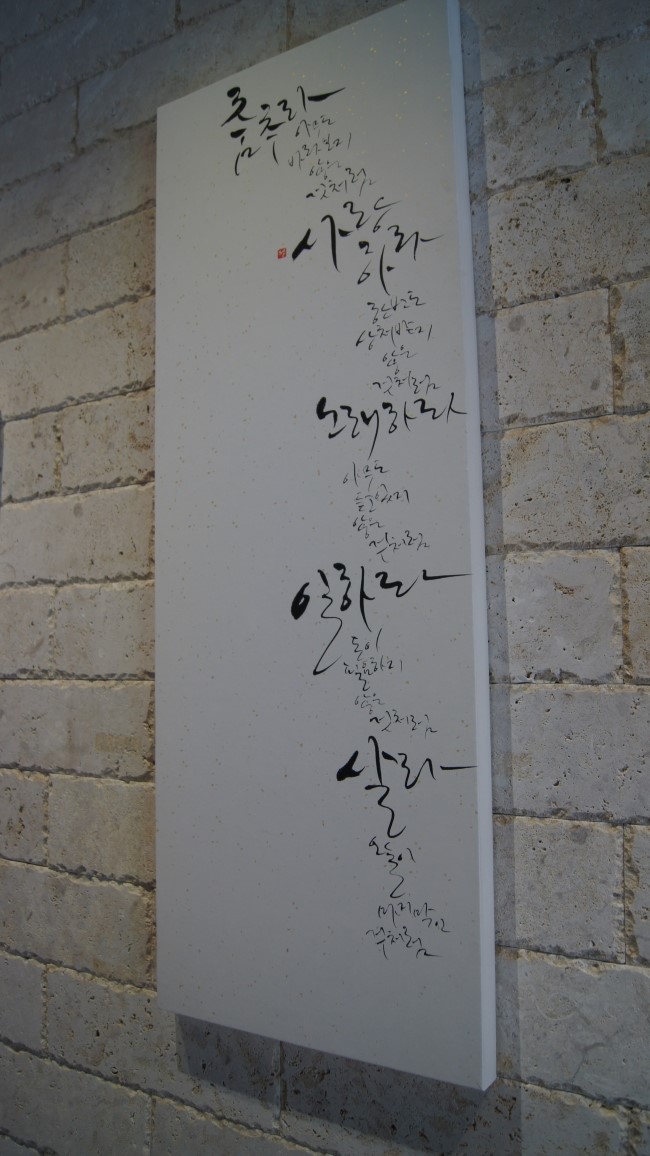 춤추라
아무도
바라보지
않은
것처럼
사랑
하라
한번도
상처받지
않은
것처럼
노래하라
아무도
듣고있지
않은
것처럼
일하라
돈이
필요하지
않은
것처럼
살라
오늘이
마지막인
것처럼